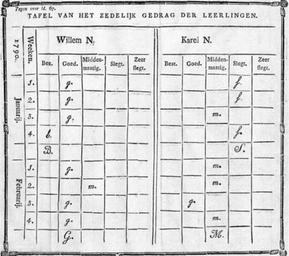 Tegen over bl. 67.
TAFEL VAN HET ZEDELIJK GEDRAG DER LEERLINGEN.
1790. Weeken. Willem N. Karel N.
Best. Goed. Middenmaatig. Slegt. Zeer slegt. Bes. Goed. Middenmaatig. Slegt. Zeer slegt.
Januarij.
1. g. s.
2. g. s.
3. g. m.
4. b. s.
B. S.
Februarij.
1. g. m.
2. m. m.
3. g. g.
4. g. m.
G. M.